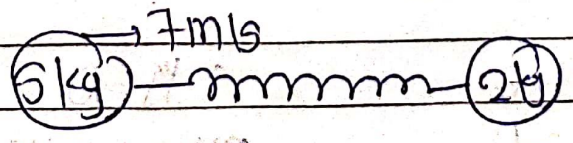 →7m/s
5kg 2kg